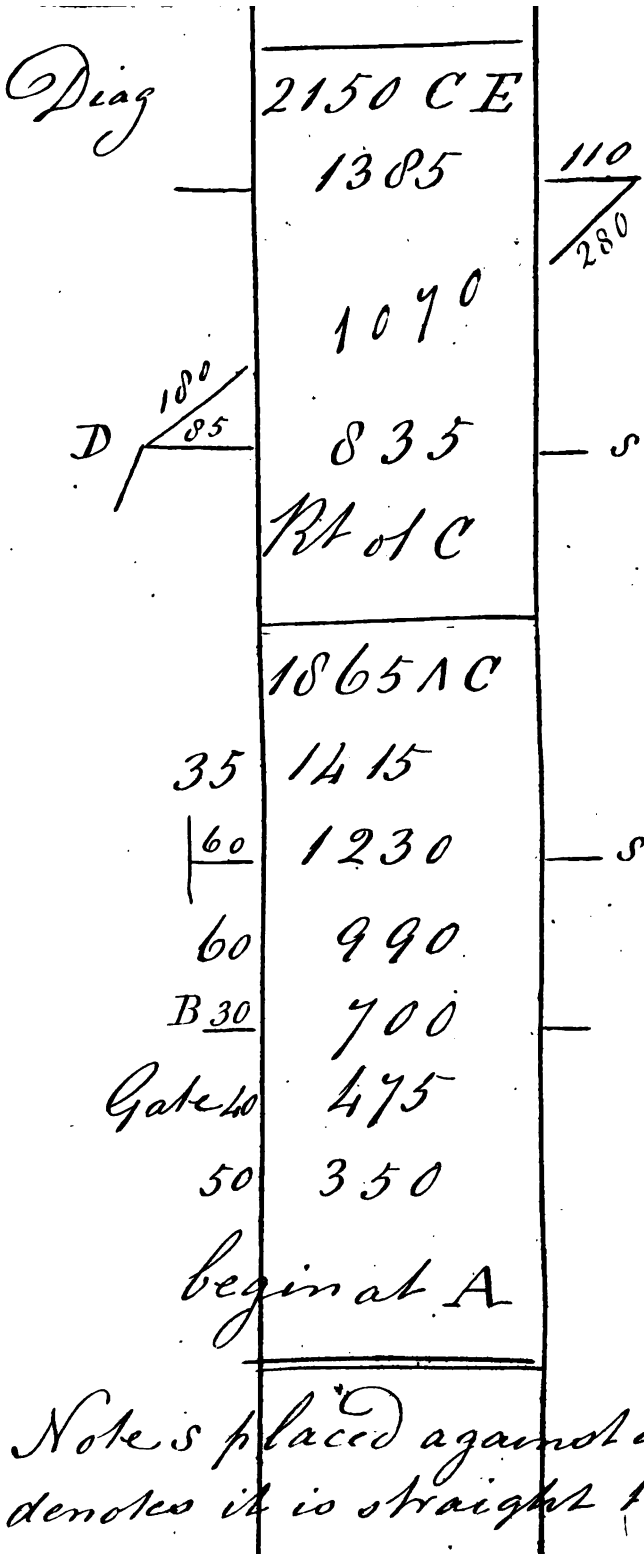 Diag 2150 C E
1385 110
280
1070
180
D 85 835 s
Rt of C
1865 A C
35 1415
60 1230 s
60 990
B 30 700
Gate 40 475
50 350
begin at A
Note s placed against
denotes it is straight